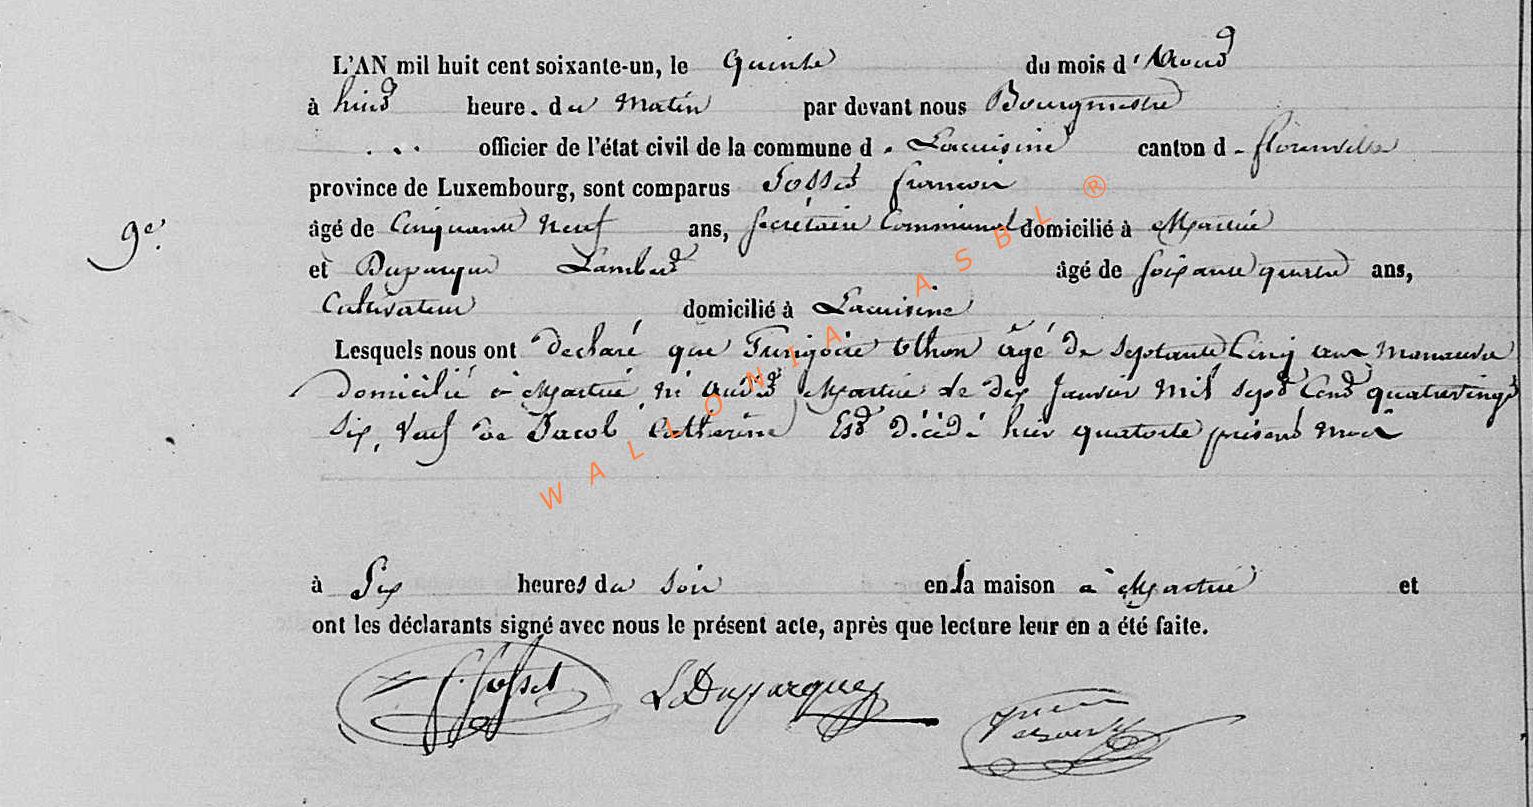 L'AN mil huit cent soixante-un, le Quinze du mois d'Aout
à huit heure. du Matin par devant nous Bourgmestre
... officier de l'état civil de la commune d. Lacuisine canton d. florenville
province de Luxembourg, sont comparus françois
9e.
âgé de Cinquante Neuf ans, Secrétaire Communal domicilié à Martué
et Duparque Lambert âgé de soixante quatre ans,
Cultivateur domicilié à Lacuisine
Lesquels nous ont declaré que âgé de septante Cinq ans manoeuvre
Domicilié à Martué né audit Martué le dix Janvier Mil sept Cent quatrevingt
six, Veuf de Jacob Catherine Est décédé hier quatorze présent mois
à Six heures du Soir en la maison à Martué et
ont les déclarants signé avec nous le présent acte, après que lecture leur en a été faite.
L Duparque
WALLONIA ASBL ®